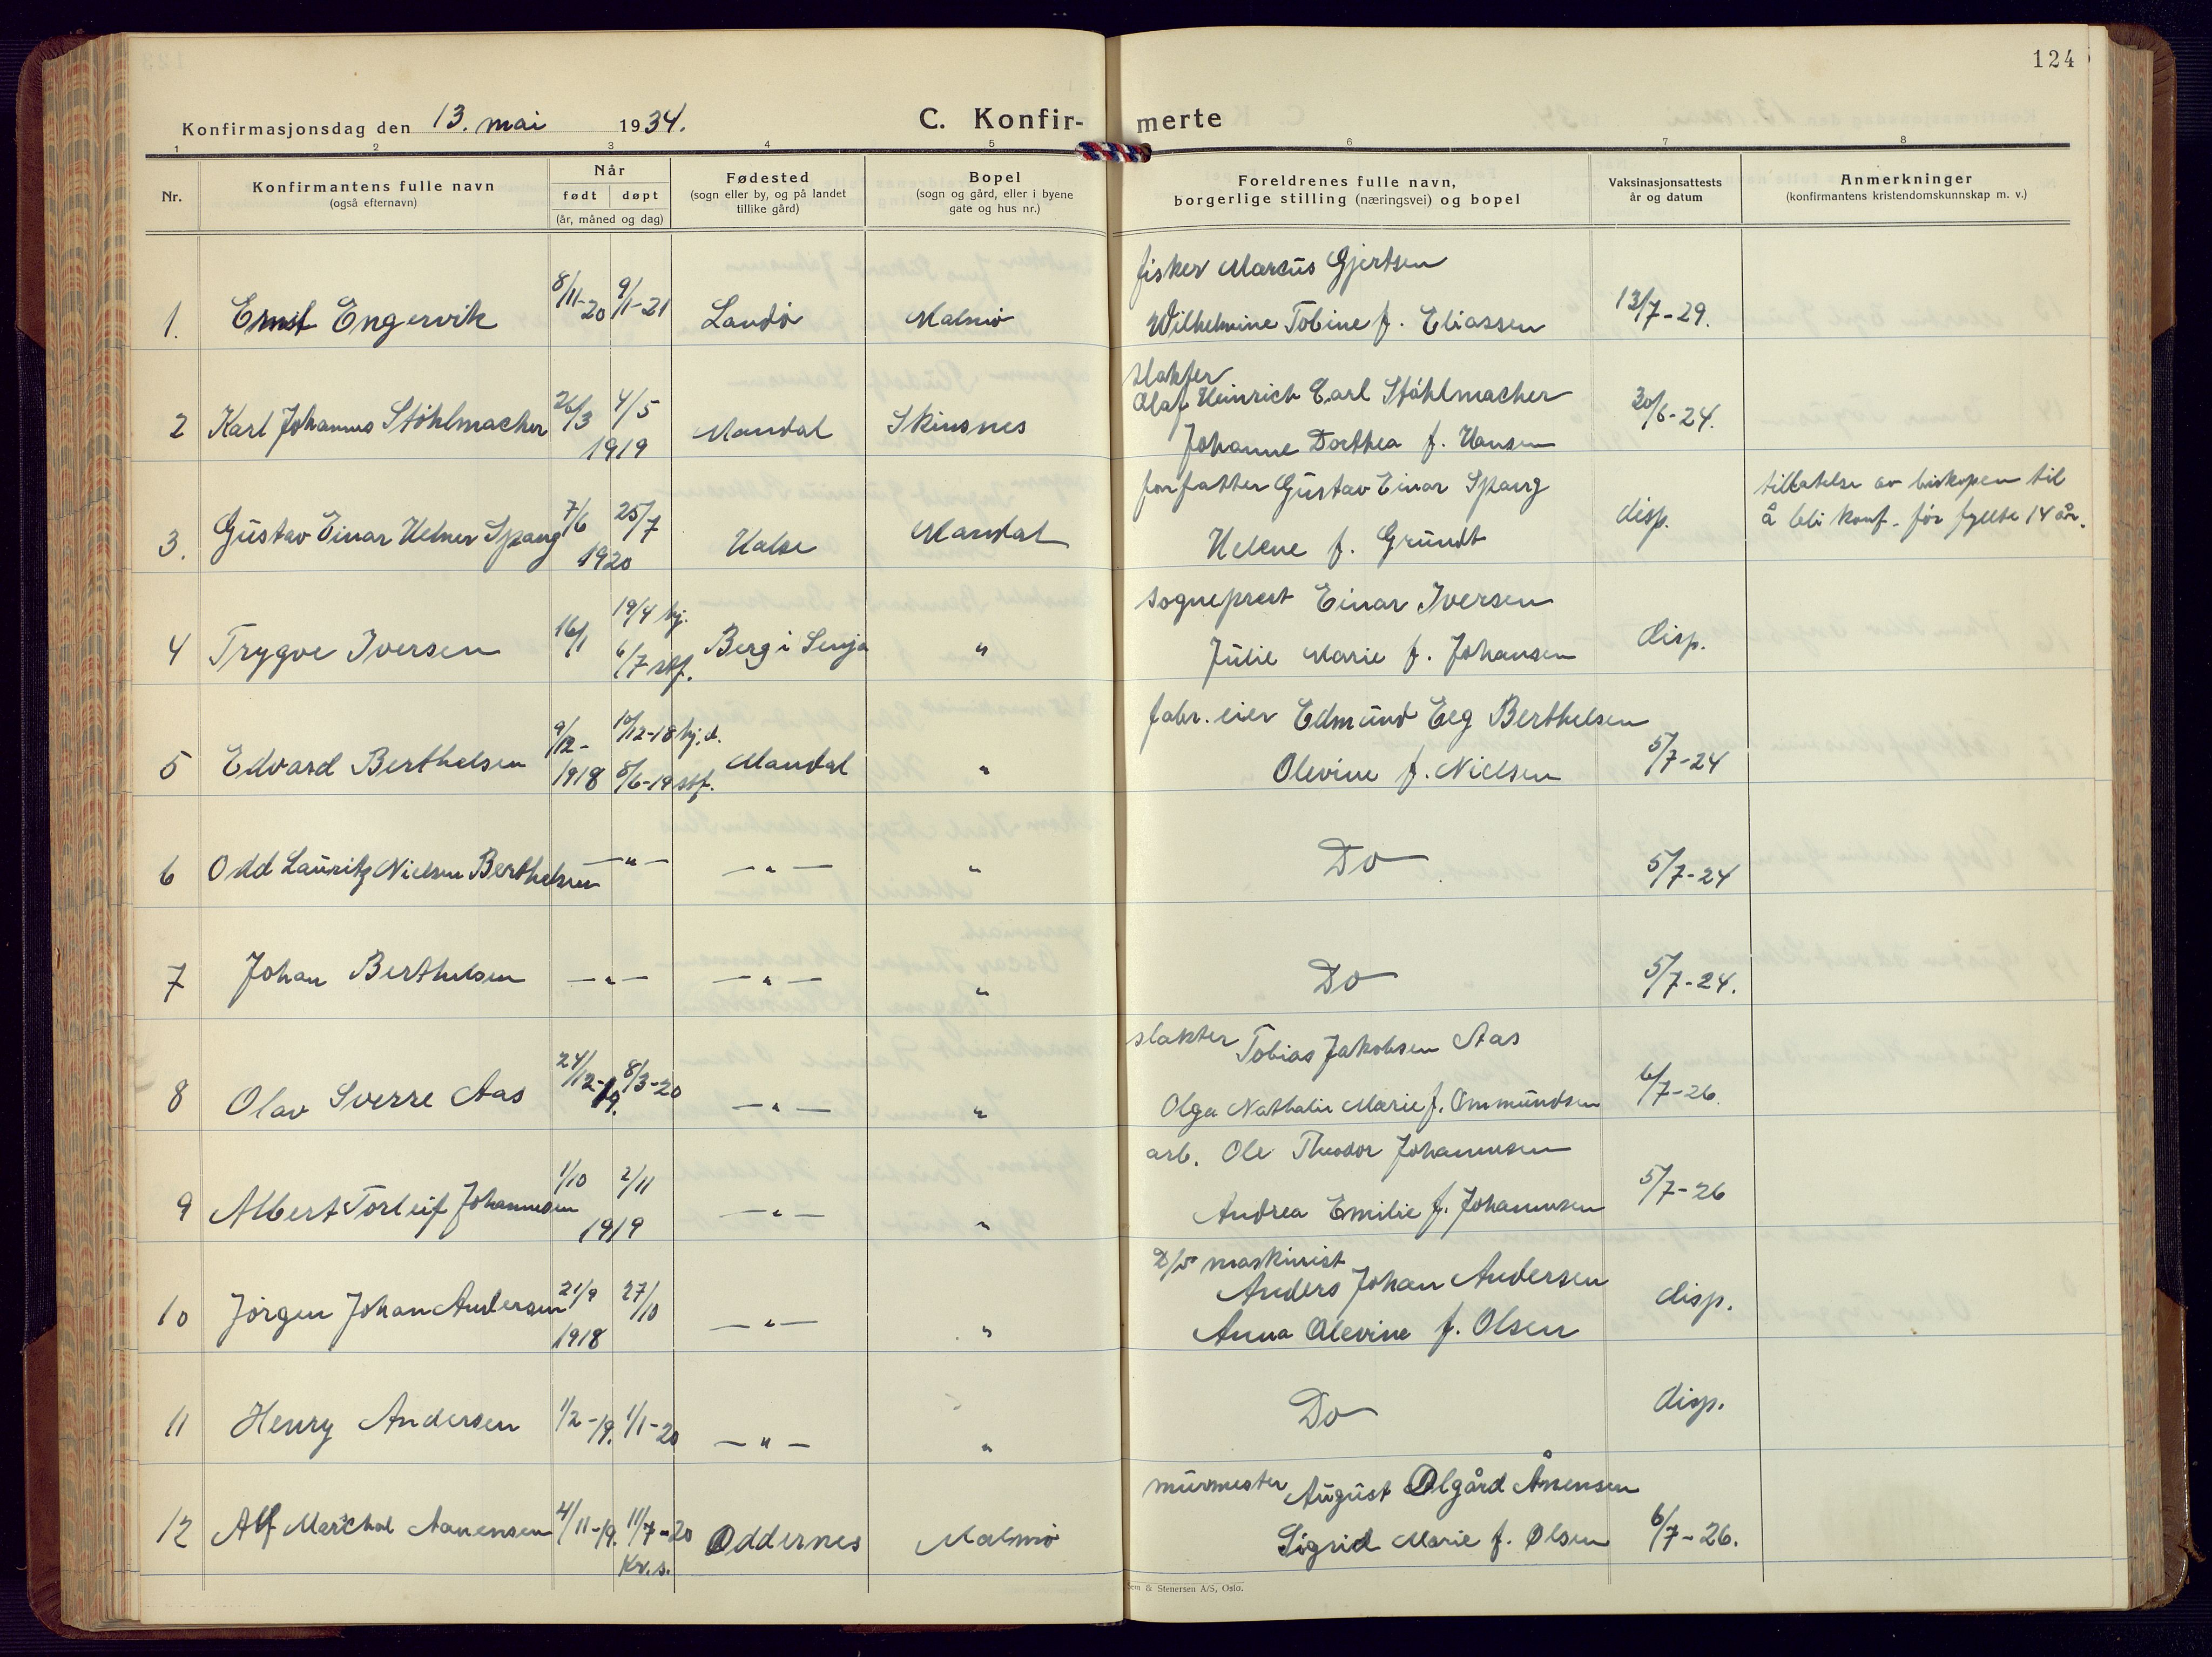 124
Konfirmasjonsdag den 13. mai 1934.
C. Konfir-merte
1 2 3 4 5 6 7 8
Nr.
Konfirmantens fulle navn
(også efternavn)
Når
født døpt
(år, måned og dag)
Fødested
(sogn eller by, og på landet
tillike gård)
Bopel
(sogn og gård, eller i byene
gate og hus nr.)
Foreldrenes fulle navn,
borgerlige stilling (næringsvei) og bopel
Vaksinasjonsattests
år og datum
Anmerkninger
(konfirmantens kristendomskunnskap m. v.)
fisker Marcus Gjertsen
1. Ernst Engervik 8/11-20 9/1-21 Landø Malmø Wilhelmine Tobine f. Eliassen 13/7-29.
slakter
Olaf Heinrich Carl Stöhlmacher
2 Karl Johannes Stöhlmacher 26/3 4/5 1919 Mandal Skinsnes Johanne Dorthea f. Hansen 30/6-24.
forfatter Gustav Einar Spang tillatelse av biskopen til
3. Gustav Einar Helmer Spang 7/6 25/7 1920 Halse Mandal Helene f. Grundt disp. å bli konf. før fyllte 14 år.
sogneprest Einar Iversen
4 Trygve Iversen 16/1 19/4 hj. 6/7 stf. Berg i Senja " Julie Marie f. Johansen disp.
fabr. eier Edmund Eeg Berthelsen
5 Edvard Berthelsen 9/12-1918 10/12-18 hj.d. 8/6-19 stf. Mandal " Olevine f. Nielsen 5/7-24
6 Odd Lauritz Nielsen Berthelsen —"— —"— " Do 5/7-24
7 Johan Berthelsen —"— —"— " Do 5/7-24.
slakter Tobias Jakobsen Aas
8 Olav Sverre Aas 24/12-19. 8/3-20 —"— " Olga Nathalie Marie f. Ommundsen 6/7-26.
arb. Ole Theodor Johannesen
9 Albert Torleif Johannesen 1/10 2/11 1919 —"— " Andrea Emilie f. Johannesen 5/7-26
D/S maskinist
Anders Johan Andersen
10 Jørgen Johan Andersen 21/9 1918 27/10 —"— " Anna Olevine f. Olsen disp.
11 Henry Andersen 1/2-19. 1/1-20 —"— " Do disp.
murmester August Olgård Ånensen
12 Alf Marschal Aanensen 4/11-19. 11/7-20 Kr.s. Oddernes Malmø Sigrid Marie f. Olsen 6/7-26.
em & Stenersen A/S, Oslo.